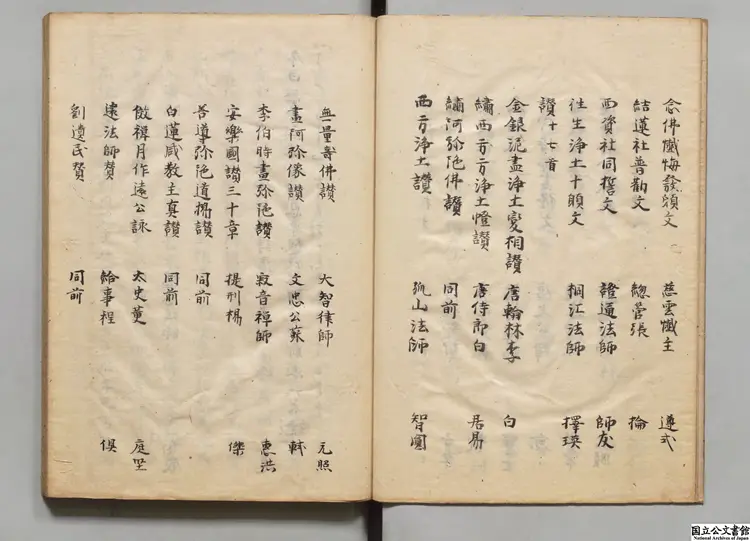 念佛懺悔發願文 慈雲懺主 遵式
結蓮社普勸文 總管張 掄
西資社同誓文 證通法師 師友
往生淨土十願文 桐江法師 擇瑛
讚十七首
金銀泥畫淨土變相讚 唐翰林李 白
繡西方淨土幢讚 唐侍郎白 居易
繡阿弥陁佛讚 同前
西方淨土讚 孤山法師 智圓
無量壽佛讚 大智律師 元照
畫阿弥像讃 文忠公蘇 軾
李伯時畫弥陁讚 寂音禅師 惠洪
安樂國讃三十章 提刑楊 傑
善導弥陁道揚讃 同前
白蓮咸教主真讃 同前
倣禅月作遠公詠 太史黄 庭坚
遠法師贊 給事程 俱
劉遺民贊 同前
国立公文書館
National Archives of Japan